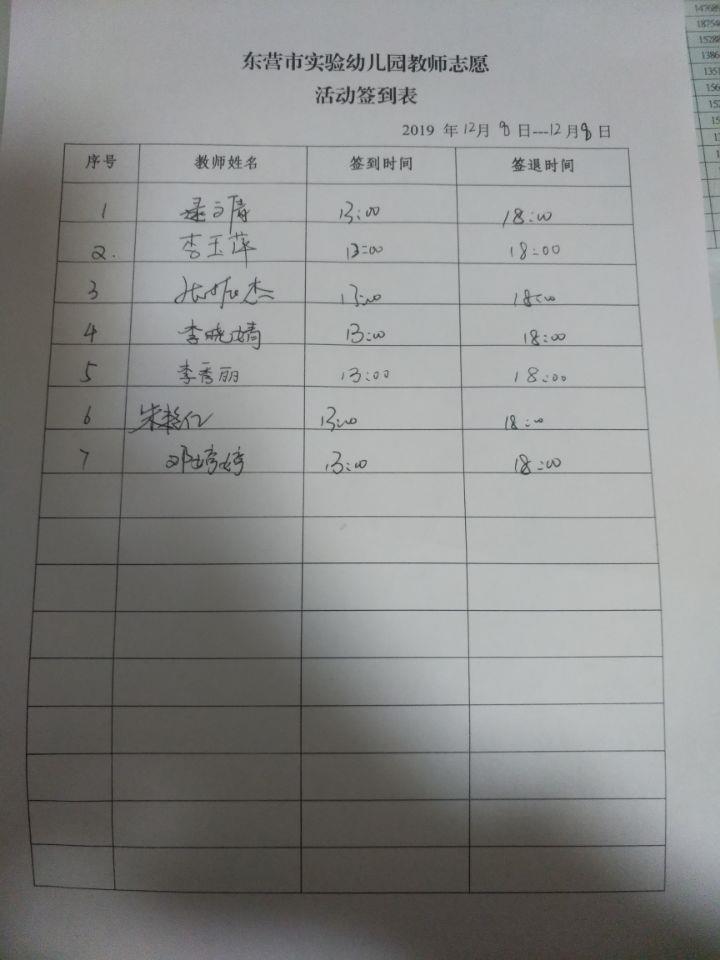 东营市实验幼儿园教师志愿
活动签到表
2019 年 12月 8 日---12月8 日
序号 教师姓名 签到时间 签退时间
1 13:00 18:00
2. 李玉萍 13:00 18:00
3 杰 13:00 18:00
4 李晓婧 13:00 18:00
5 李秀丽 13:00 18:00
6 朱 13:00 18:00
7 邓婷婷 13:00 18:00